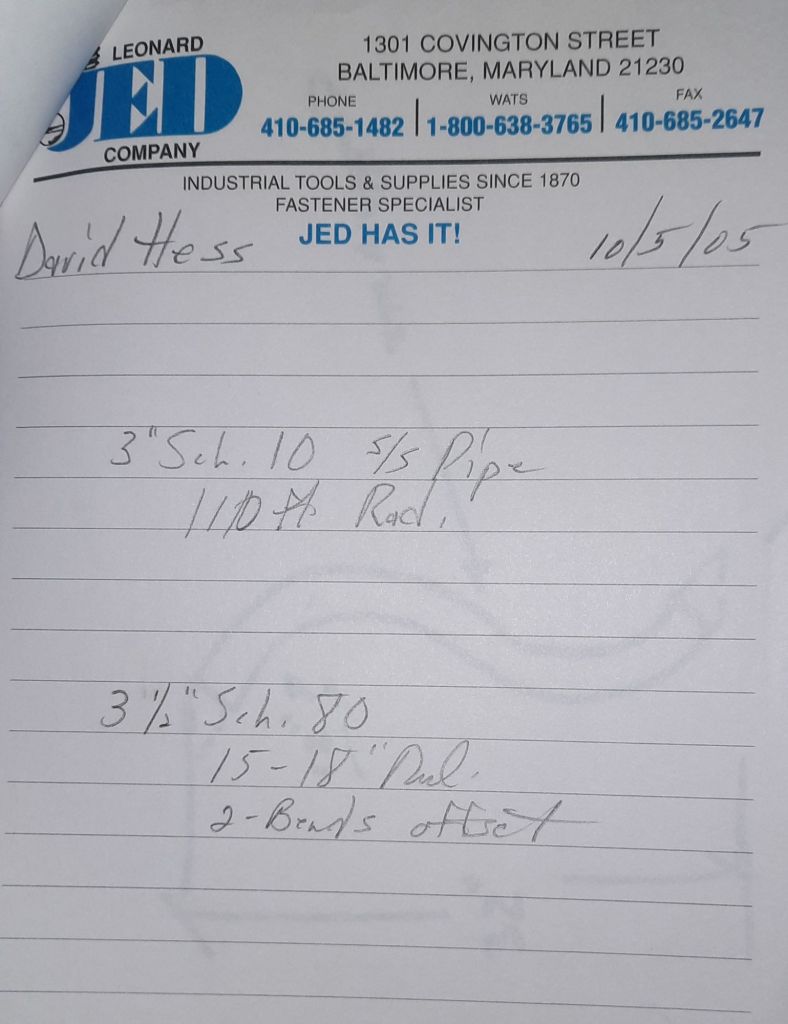 LEONARD
JED
COMPANY
1301 COVINGTON STREET
BALTIMORE, MARYLAND 21230
PHONE WATS FAX
410-685-1482 | 1-800-638-3765 | 410-685-2647
INDUSTRIAL TOOLS & SUPPLIES SINCE 1870
FASTENER SPECIALIST
JED HAS IT!
David Hess 10/5/05
3" Sch. 10 s/s Pipe
110 ft Rad.
3 1/2" Sch. 80
15-18" Rad.
2-Bends offset